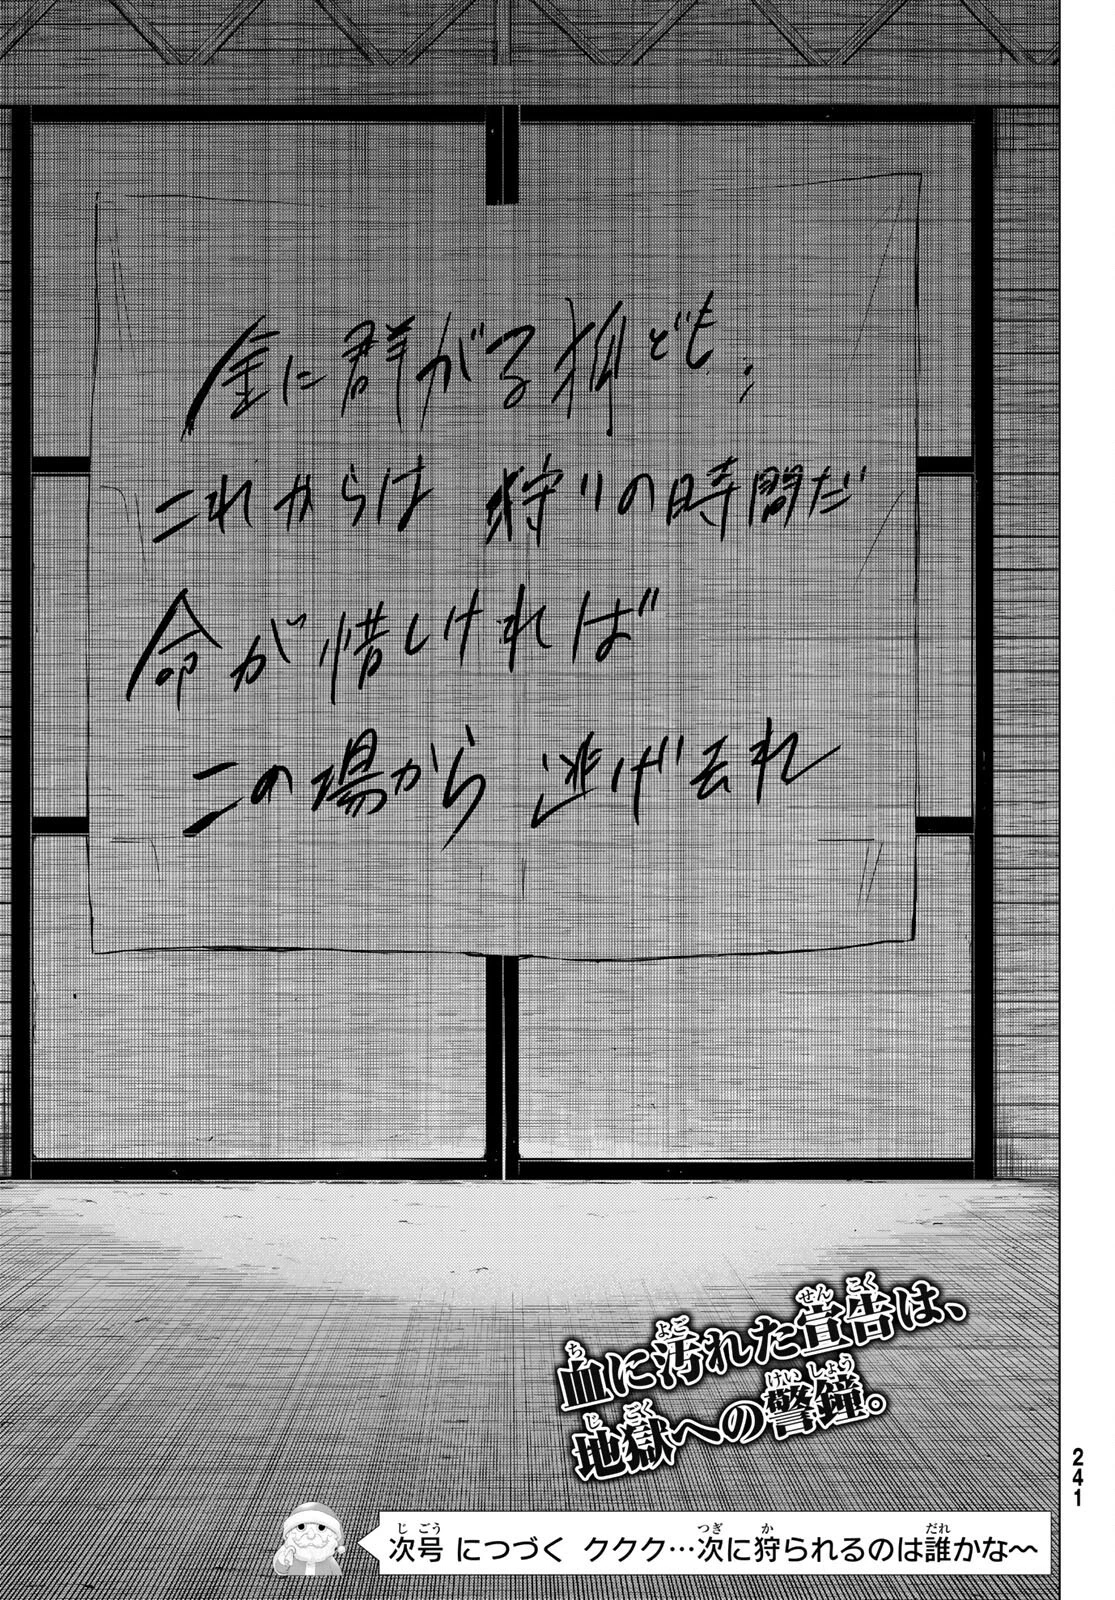 金に群がる狐ども、
これからは 狩りの時間だ
命が惜しければ
この場から 逃げ去れ
血に汚れた宣告は、
地獄への警鐘。
241
次号 につづく ククク…次に狩られるのは誰かな〜